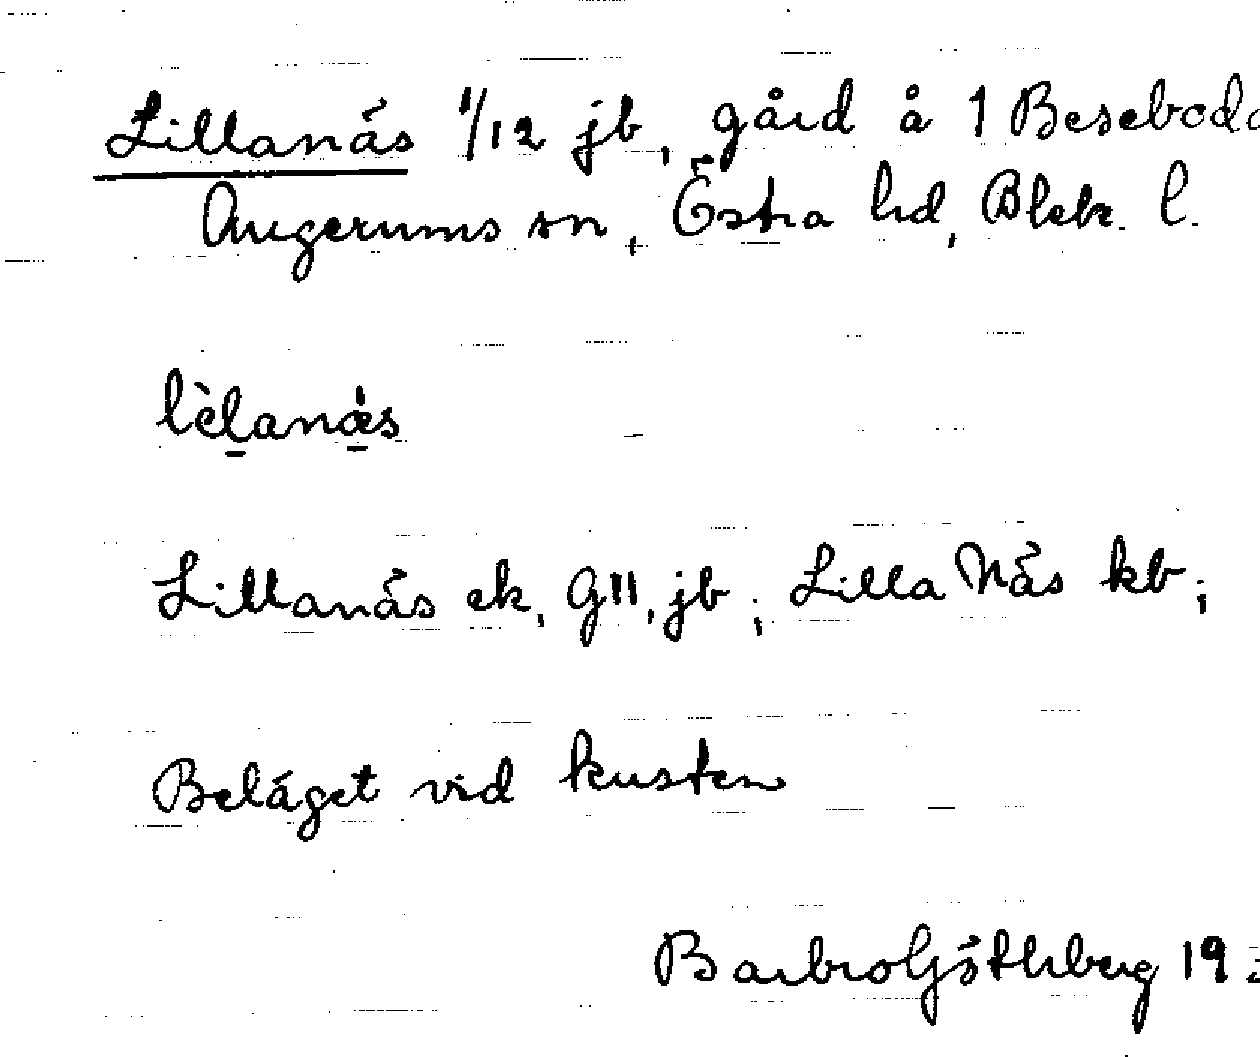 Lillanäs 1/12 jb, gård å 1 Beseboda
Augerums sn, Östra hd, Blek. l.
lèlanæ̀s
Lillanäs ek, G11, jb; Lilla Näs kb;
Beläget vid kusten
Barbro Göthberg 19